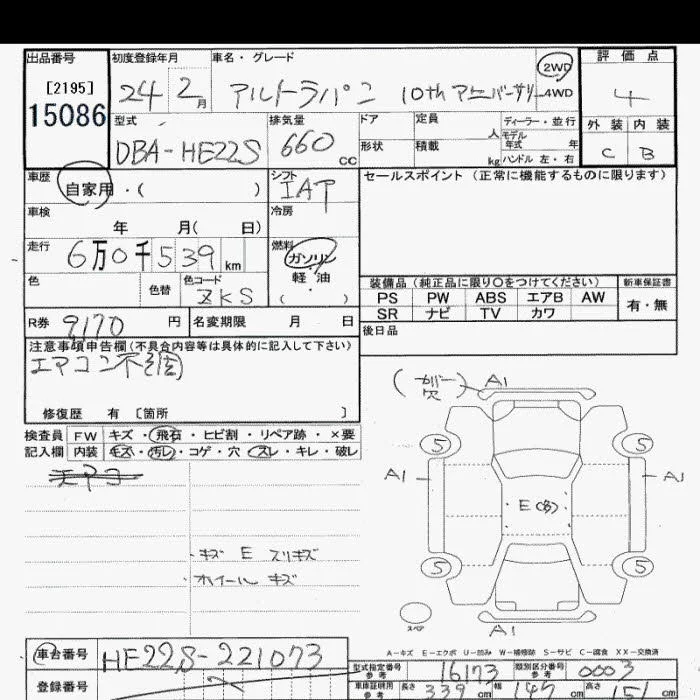 出品番号 初度登録年月 車名・グレード 2WD 評価点
[2195] 24 2月 アルトラパン 10th アニバーサリー 4WD 4
15086 型式 排気量 ドア 定員 人 ディーラー・並行 外装 内装
DBA-HE22S 660cc 形状 積載 kg モデル年式 年 ハンドル 左・右 C B
車歴 自家用・( ) シフト IAT セールスポイント(正常に機能するものに限ります)
車検 年 月( 日) 冷房
走行 6万0千539km 燃料 ガソリン
軽・油
( )
色 色替 色コード ZKS 装備品(純正品に限り○をつけてください) 新車保証書
PS PW ABS エアB AW 有・無
SR ナビ TV カワ
R券 9170円 名変期限 月 日 後日品
注意事項申告欄(不具合内容等は具体的に記入して下さい)
エアコン不調
修復歴 有 〔箇所 〕
検査員 FW キズ・飛石・ヒビ割・リペア跡・×要
記入欄 内装 キズ・汚レ・コゲ・穴・スレ・キレ・破レ
(ガバー穴) A1
5 5
A1 A1
E(多)
5 5
スペア A1
・キズ E スリキズ
・ホイール キズ
A-キズ E-エクボ U-凹み W-補修跡 S-サビ C-腐食 XX-交換済
車台番号 HE22S-221073 型式指定番号 参考 16173 類別区分番号 参考 0003
登録番号 車庫証明用 参考 長さ 339cm 幅 147cm 高さ cm